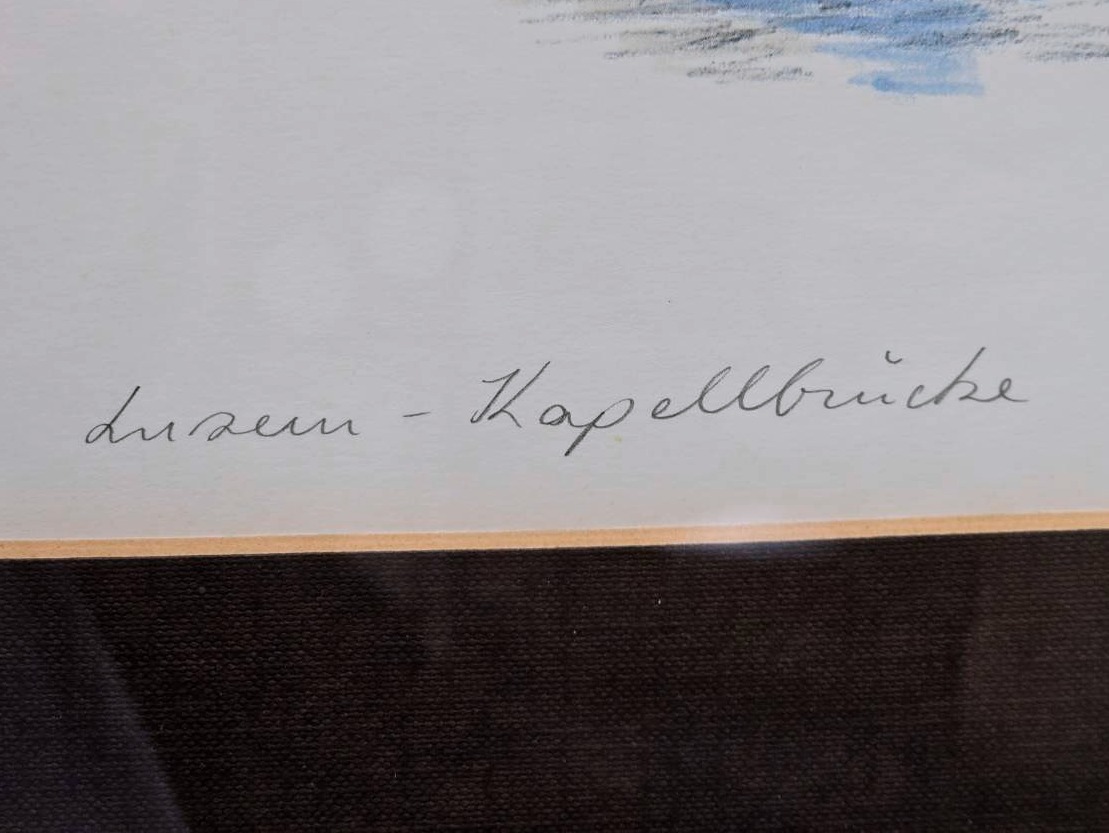 Luzern - Kapellbrücke